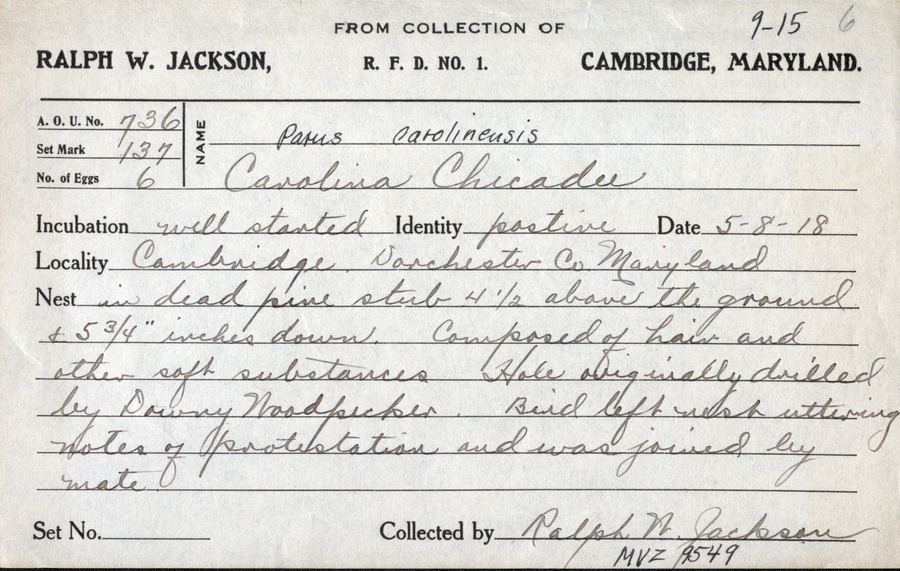 FROM COLLECTION OF 9-15 6
RALPH W. JACKSON, R. F. D. NO. 1. CAMBRIDGE, MARYLAND.
A. O. U. No. 736 NAME Parus carolinensis
Set Mark 137
No. of Eggs 6 Carolina Chicadee
Incubation well started Identity postive Date 5-8-18
Locality Cambridge. Dorchester Co. Maryland
Nest in dead pine stub 4 1/2 above the ground
& 5 3/4" inches down. Composed of hair and
other soft substances Hole originally drilled
by Downy Woodpecker. Bird left nest uttering
notes of protestation and was joined by
mate.
Set No. Collected by Ralph W. Jackson
MVZ 9549